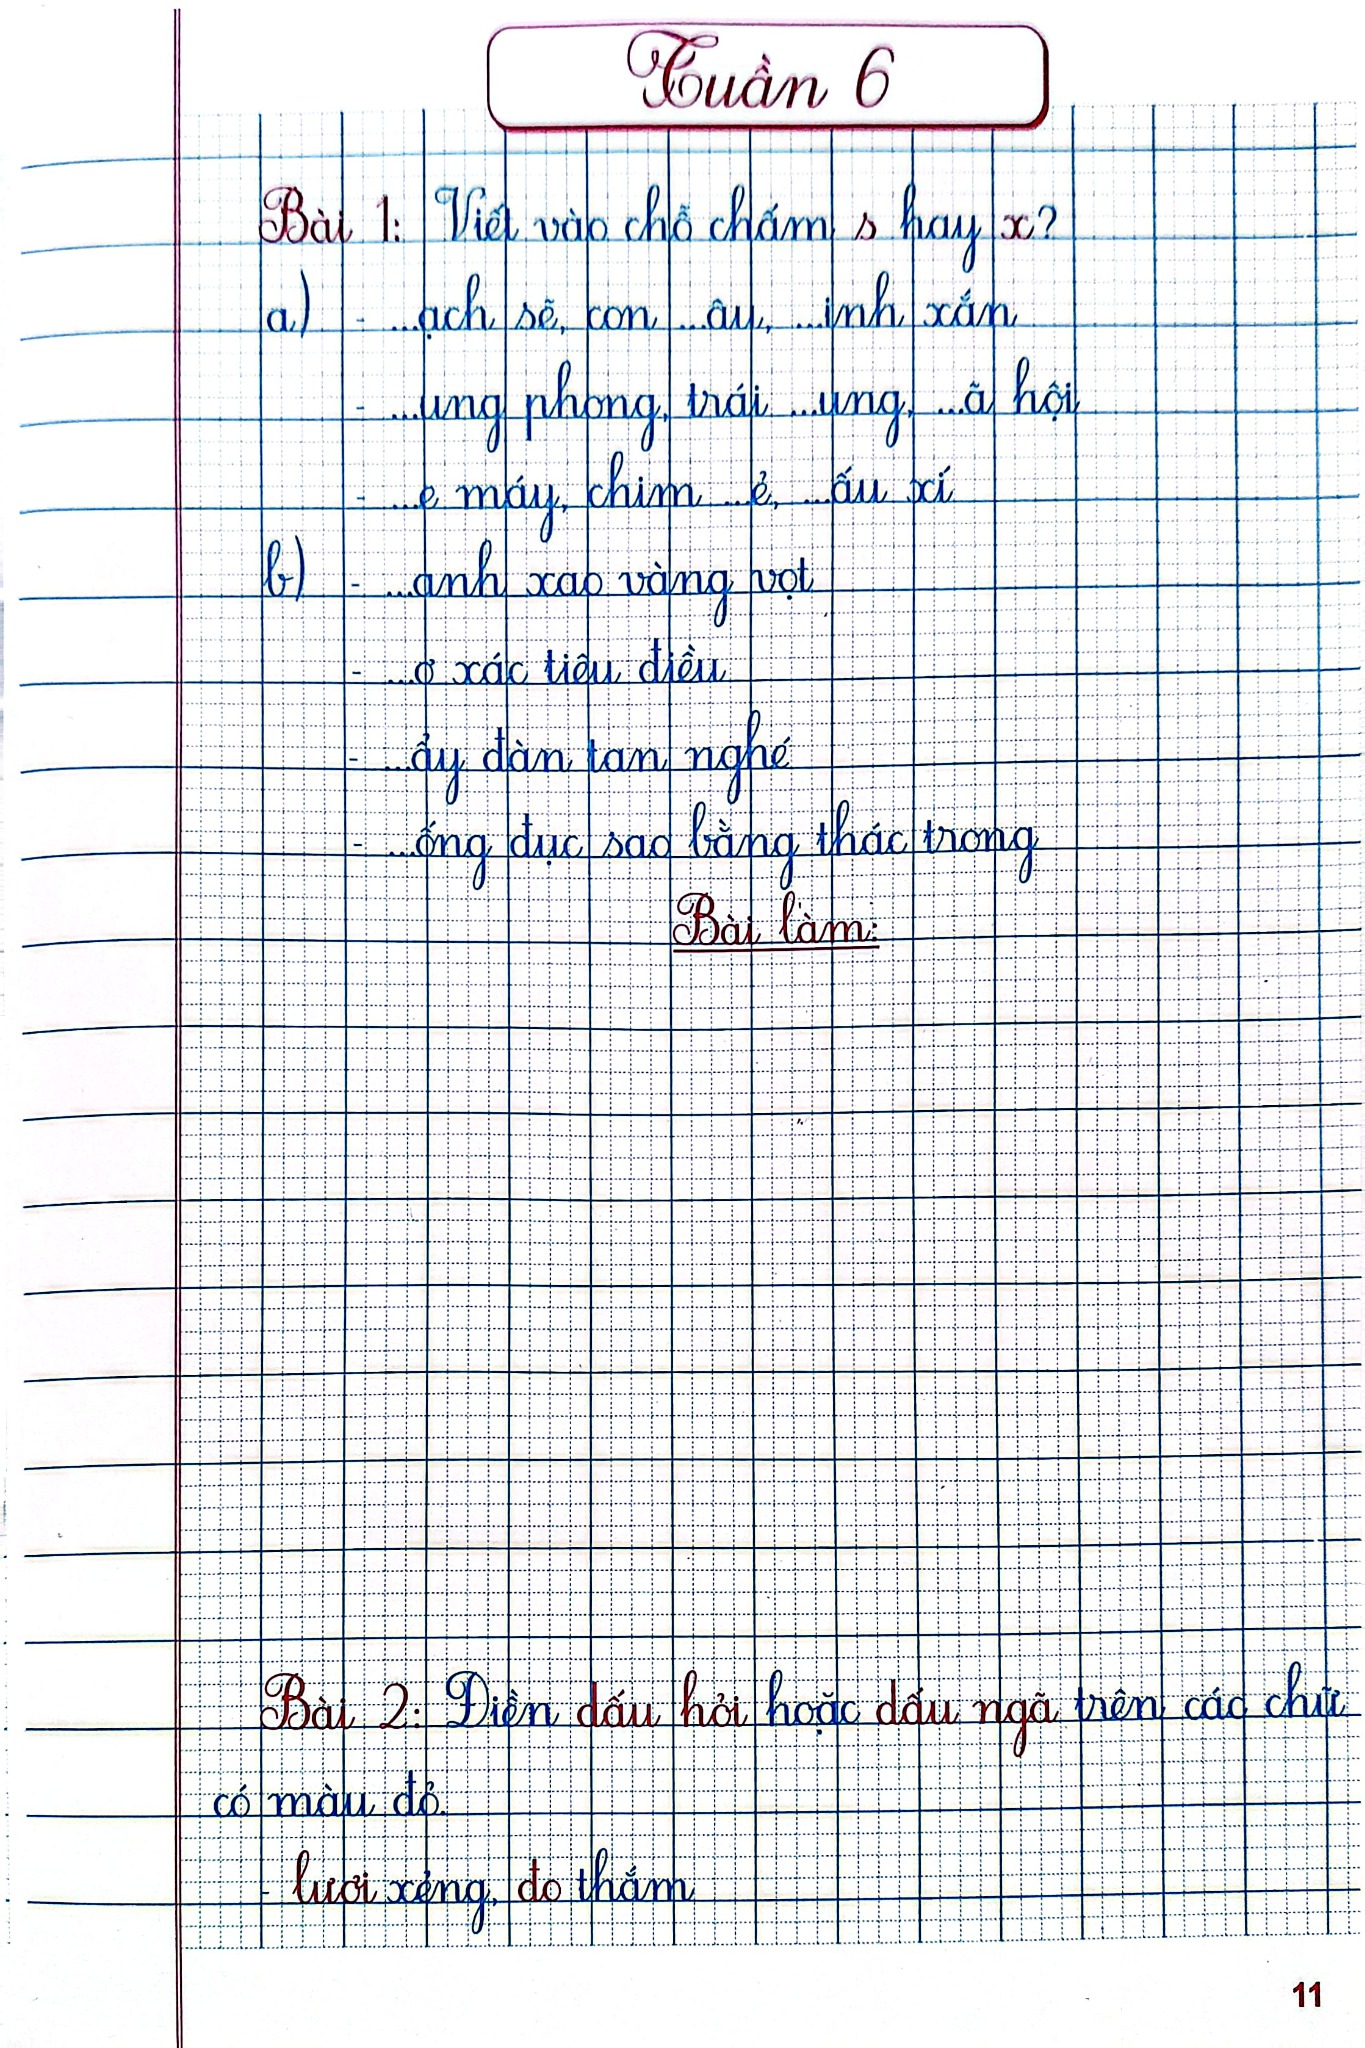 Tuần 6
Bài 1: Viết vào chỗ chấm s hay x?
a) - ...ạch sẽ, con ...âu, ...inh xắn
- ...ung phong, trái ...ung, ...ã hội
- ...e máy, chim ...ẻ, ...ấu xí
b) - ...anh xao vàng vọt
- ...ơ xác tiêu điều
- ...ẩy đàn tan nghé
- ...ống đục sao bằng thác trong
Bài làm:
Bài 2: Điền dấu hỏi hoặc dấu ngã trên các chữ
có màu đỏ.
- lươi xẻng, đo thắm
11